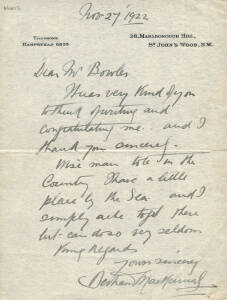 Nov 27 1922
TELEPHONE
HAMPSTEAD 6895
28, MARLBOROUGH HILL,
ST JOHN'S WOOD, N.W.
Dear Mr Bowles
It was very kind of you
to think of writing and
congratulating me. and I
thank you sincerely.
Wise man to be in the
Country I have a little
place by the Sea. and I
simply ache to get there
but can do so very seldom
Kind Regards
Yours sincerely
Bertram Mackennal